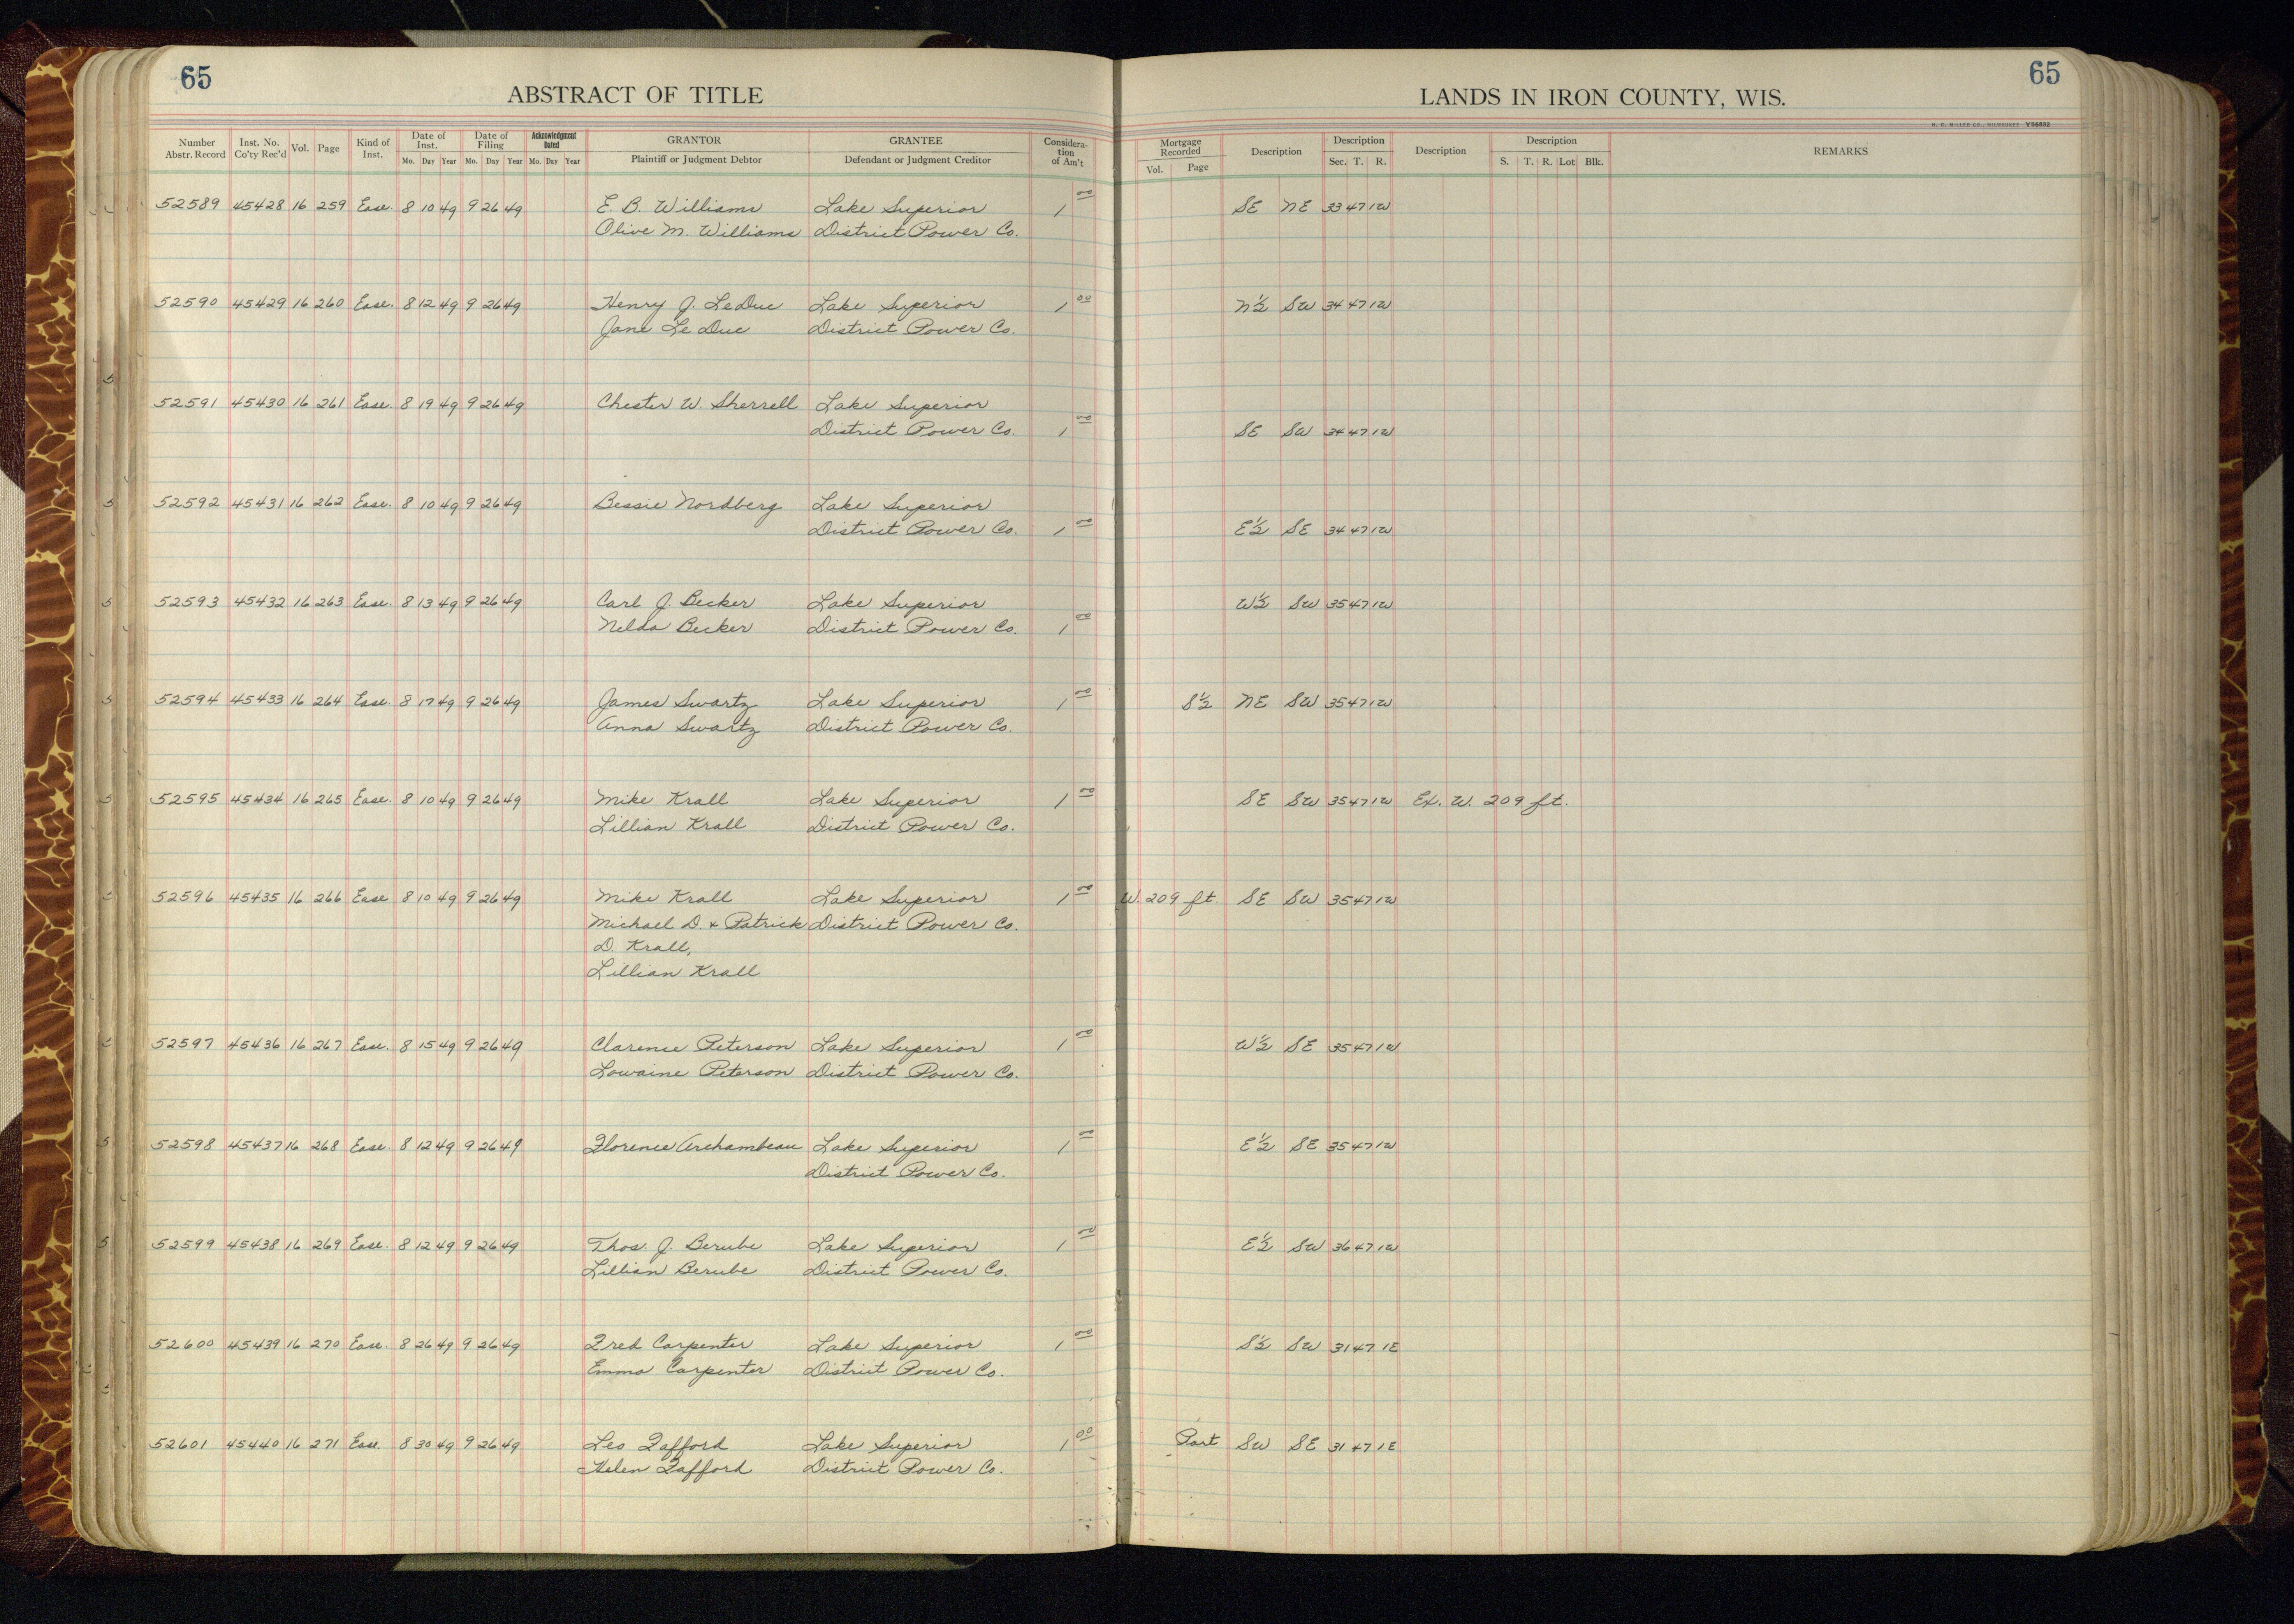 65
ABSTRACT OF TITLE
LANDS IN IRON COUNTY, WIS.
65
H. C. MILLER CO., MILWAUKEE V56892
Number Abstr. Record Inst. No. Co'ty Rec'd Vol. Page Kind of Inst. Date of Inst. Mo. Day Year Date of Filing Mo. Day Year Acknowledgment Dated Mo. Day Year GRANTOR Plaintiff or Judgment Debtor GRANTEE Defendant or Judgment Creditor Considera- tion of Am't Mortgage Recorded Vol. Page Description Description Sec. T. R. Description Description S. T. R. Lot Blk. REMARKS
52589 45428 16 259 Ease. 8 10 49 9 26 49 E. B. Williams Lake Superior 1 00 SE NE 33 47 1W
Olive M. Williams District Power Co.
52590 45429 16 260 Ease. 8 12 49 9 26 49 Henry J. LeDuc Lake Superior 1 00 N½ SW 34 47 1W
Jane Le Duc District Power Co.
52591 45430 16 261 Ease. 8 19 49 9 26 49 Chester W. Sherrell Lake Superior
District Power Co. 1 00 SE SW 34 47 1W
52592 45431 16 262 Ease. 8 10 49 9 26 49 Bessie Nordberg Lake Superior
District Power Co. 1 00 E½ SE 34 47 1W
52593 45432 16 263 Ease. 8 13 49 9 26 49 Carl J. Becker Lake Superior W½ SW 35 47 1W
Nelda Becker District Power Co. 1 00
52594 45433 16 264 Ease. 8 17 49 9 26 49 James Swartz Lake Superior 1 00 S½ NE SW 35 47 1W
Anna Swartz District Power Co.
52595 45434 16 265 Ease. 8 10 49 9 26 49 Mike Krall Lake Superior 1 00 SE SW 35 47 1W Ex. W. 209 ft.
Lillian Krall District Power Co.
52596 45435 16 266 Ease 8 10 49 9 26 49 Mike Krall Lake Superior 1 00 W. 209 ft. SE SW 35 47 1W
Michael D. & Patrick District Power Co.
D. Krall,
Lillian Krall
52597 45436 16 267 Ease. 8 15 49 9 26 49 Clarence Peterson Lake Superior 1 00 W½ SE 35 47 1W
Lowaine Peterson District Power Co.
52598 45437 16 268 Ease. 8 12 49 9 26 49 Florence Archambeau Lake Superior 1 00 E½ SE 35 47 1W
District Power Co.
52599 45438 16 269 Ease. 8 12 49 9 26 49 Thos. J. Berube Lake Superior 1 00 E½ SW 36 47 1W
Lillian Berube District Power Co.
52600 45439 16 270 Ease. 8 26 49 9 26 49 Fred Carpenter Lake Superior 1 00 S½ SW 31 47 1E
Emma Carpenter District Power Co.
52601 45440 16 271 Ease. 8 30 49 9 26 49 Leo Fafford Lake Superior 1 00 Part SW SE 31 47 1E
Helen Fafford District Power Co.